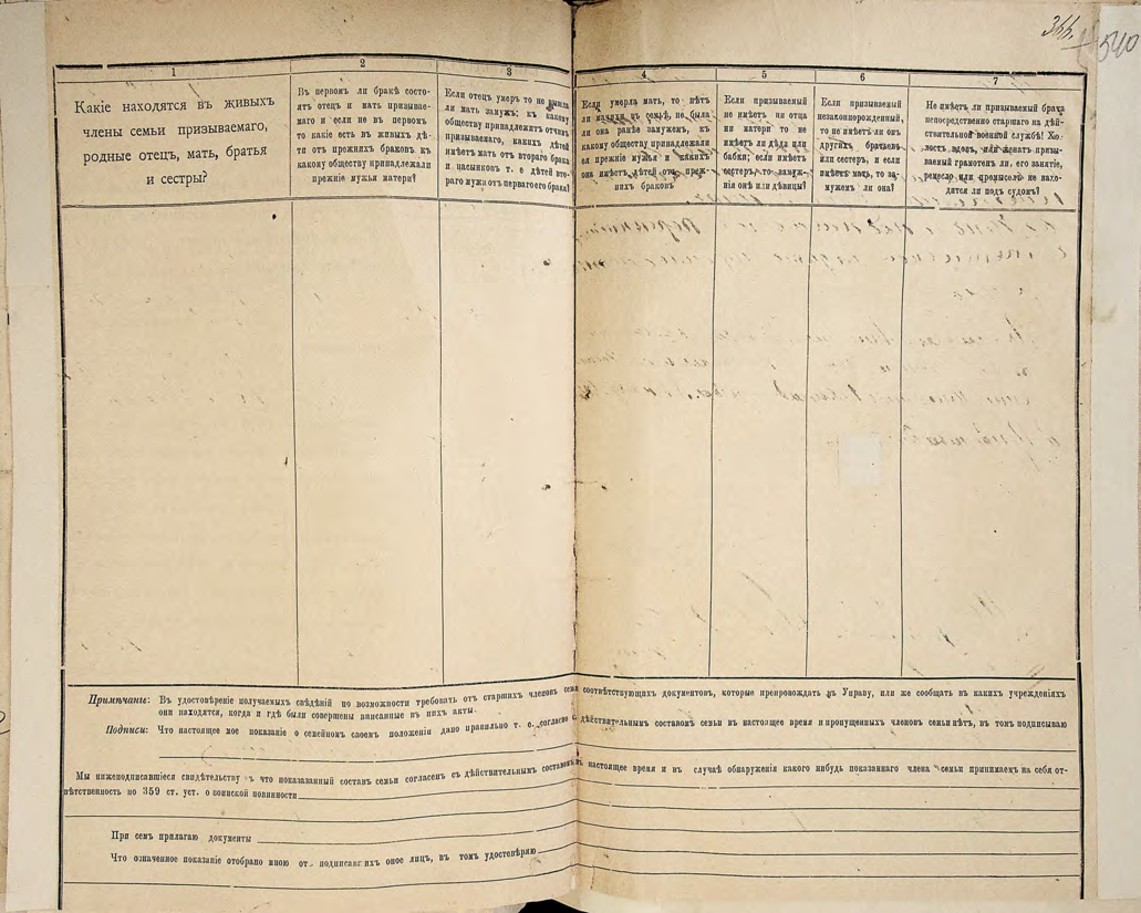 540
1
Какіе находятся въ живыхъ
члены семьи призываемаго,
родные отецъ, мать, братья
и сестры?
2
Въ первомъ ли бракѣ состо-
ятъ отецъ и мать призывае-
маго и если не въ первомъ
то какіе есть въ живыхъ дѣ-
ти отъ прежнихъ браковъ къ
какому обществу принадлежали
прежніе мужья матери?
3
Если отецъ умеръ то не вышла
ли мать замужъ; къ какому
обществу принадлежитъ отчимъ
призываемаго, какихъ дѣтей
имѣетъ мать отъ втораго брака
и пасынковъ т. е дѣтей вто-
раго мужа отъ перваго его брака?
4
Если умерла мать, то нѣтъ
ли мачихи въ семьѣ, не была
ли она ранѣе замужемъ, къ
какому обществу принадлежали
ея прежніе мужья и какихъ
она имѣетъ дѣтей отъ преж-
нихъ браковъ
5
Если призываемый
не имѣетъ ни отца
ни матери то не
имѣетъ ли дѣда или
бабки; если имѣетъ
сестеръ, то замуж-
нія онѣ или дѣвицы?
6
Если призываемый
незаконнорожденный,
то не имѣетъ ли онъ
другихъ братьевъ
или сестеръ, и если
имѣетъ мать, то за-
мужемъ ли она?
7
Не имѣетъ ли призываемый брата
непосредственно старшаго на дѣй-
ствительной военной службѣ! Хо-
лостъ, вдовъ, или женатъ призы-
ваемый грамотенъ ли, его занятіе,
ремесло или промыселъ не нахо-
дятся ли подъ судомъ?
Примѣчаніе: Въ удостовѣреніе получаемыхъ свѣдѣній по возможности требовать отъ старшихъ членовъ семьи соотвѣтствующихъ документовъ, которые препровождать въ Управу, или же сообщать въ какихъ учрежденіяхъ
они находятся, когда и гдѣ были совершены вписанные въ нихъ акты.
Подписи: Что настоящее мое показаніе о семейномъ своемъ положеніи дано правильно т. е. согласно съ дѣйствительнымъ составомъ семьи въ настоящее время и пропущенныхъ членовъ семьи нѣтъ, въ томъ подписываю
Мы нижеподписавшіеся свидѣтельству ъ что показазанный составъ семьи согласенъ съ дѣйствительнымъ составомъ въ настоящее время и въ случаѣ обнаруженія какого нибудь показаннаго члена семьи принимаемъ на себя от-
вѣтственность по 359 ст. уст. о воинской повинности
При семъ прилагаю документы
Что означенное показаніе отобрано мною отъ подписавшихъ оное лицъ, въ томъ удостовѣряю